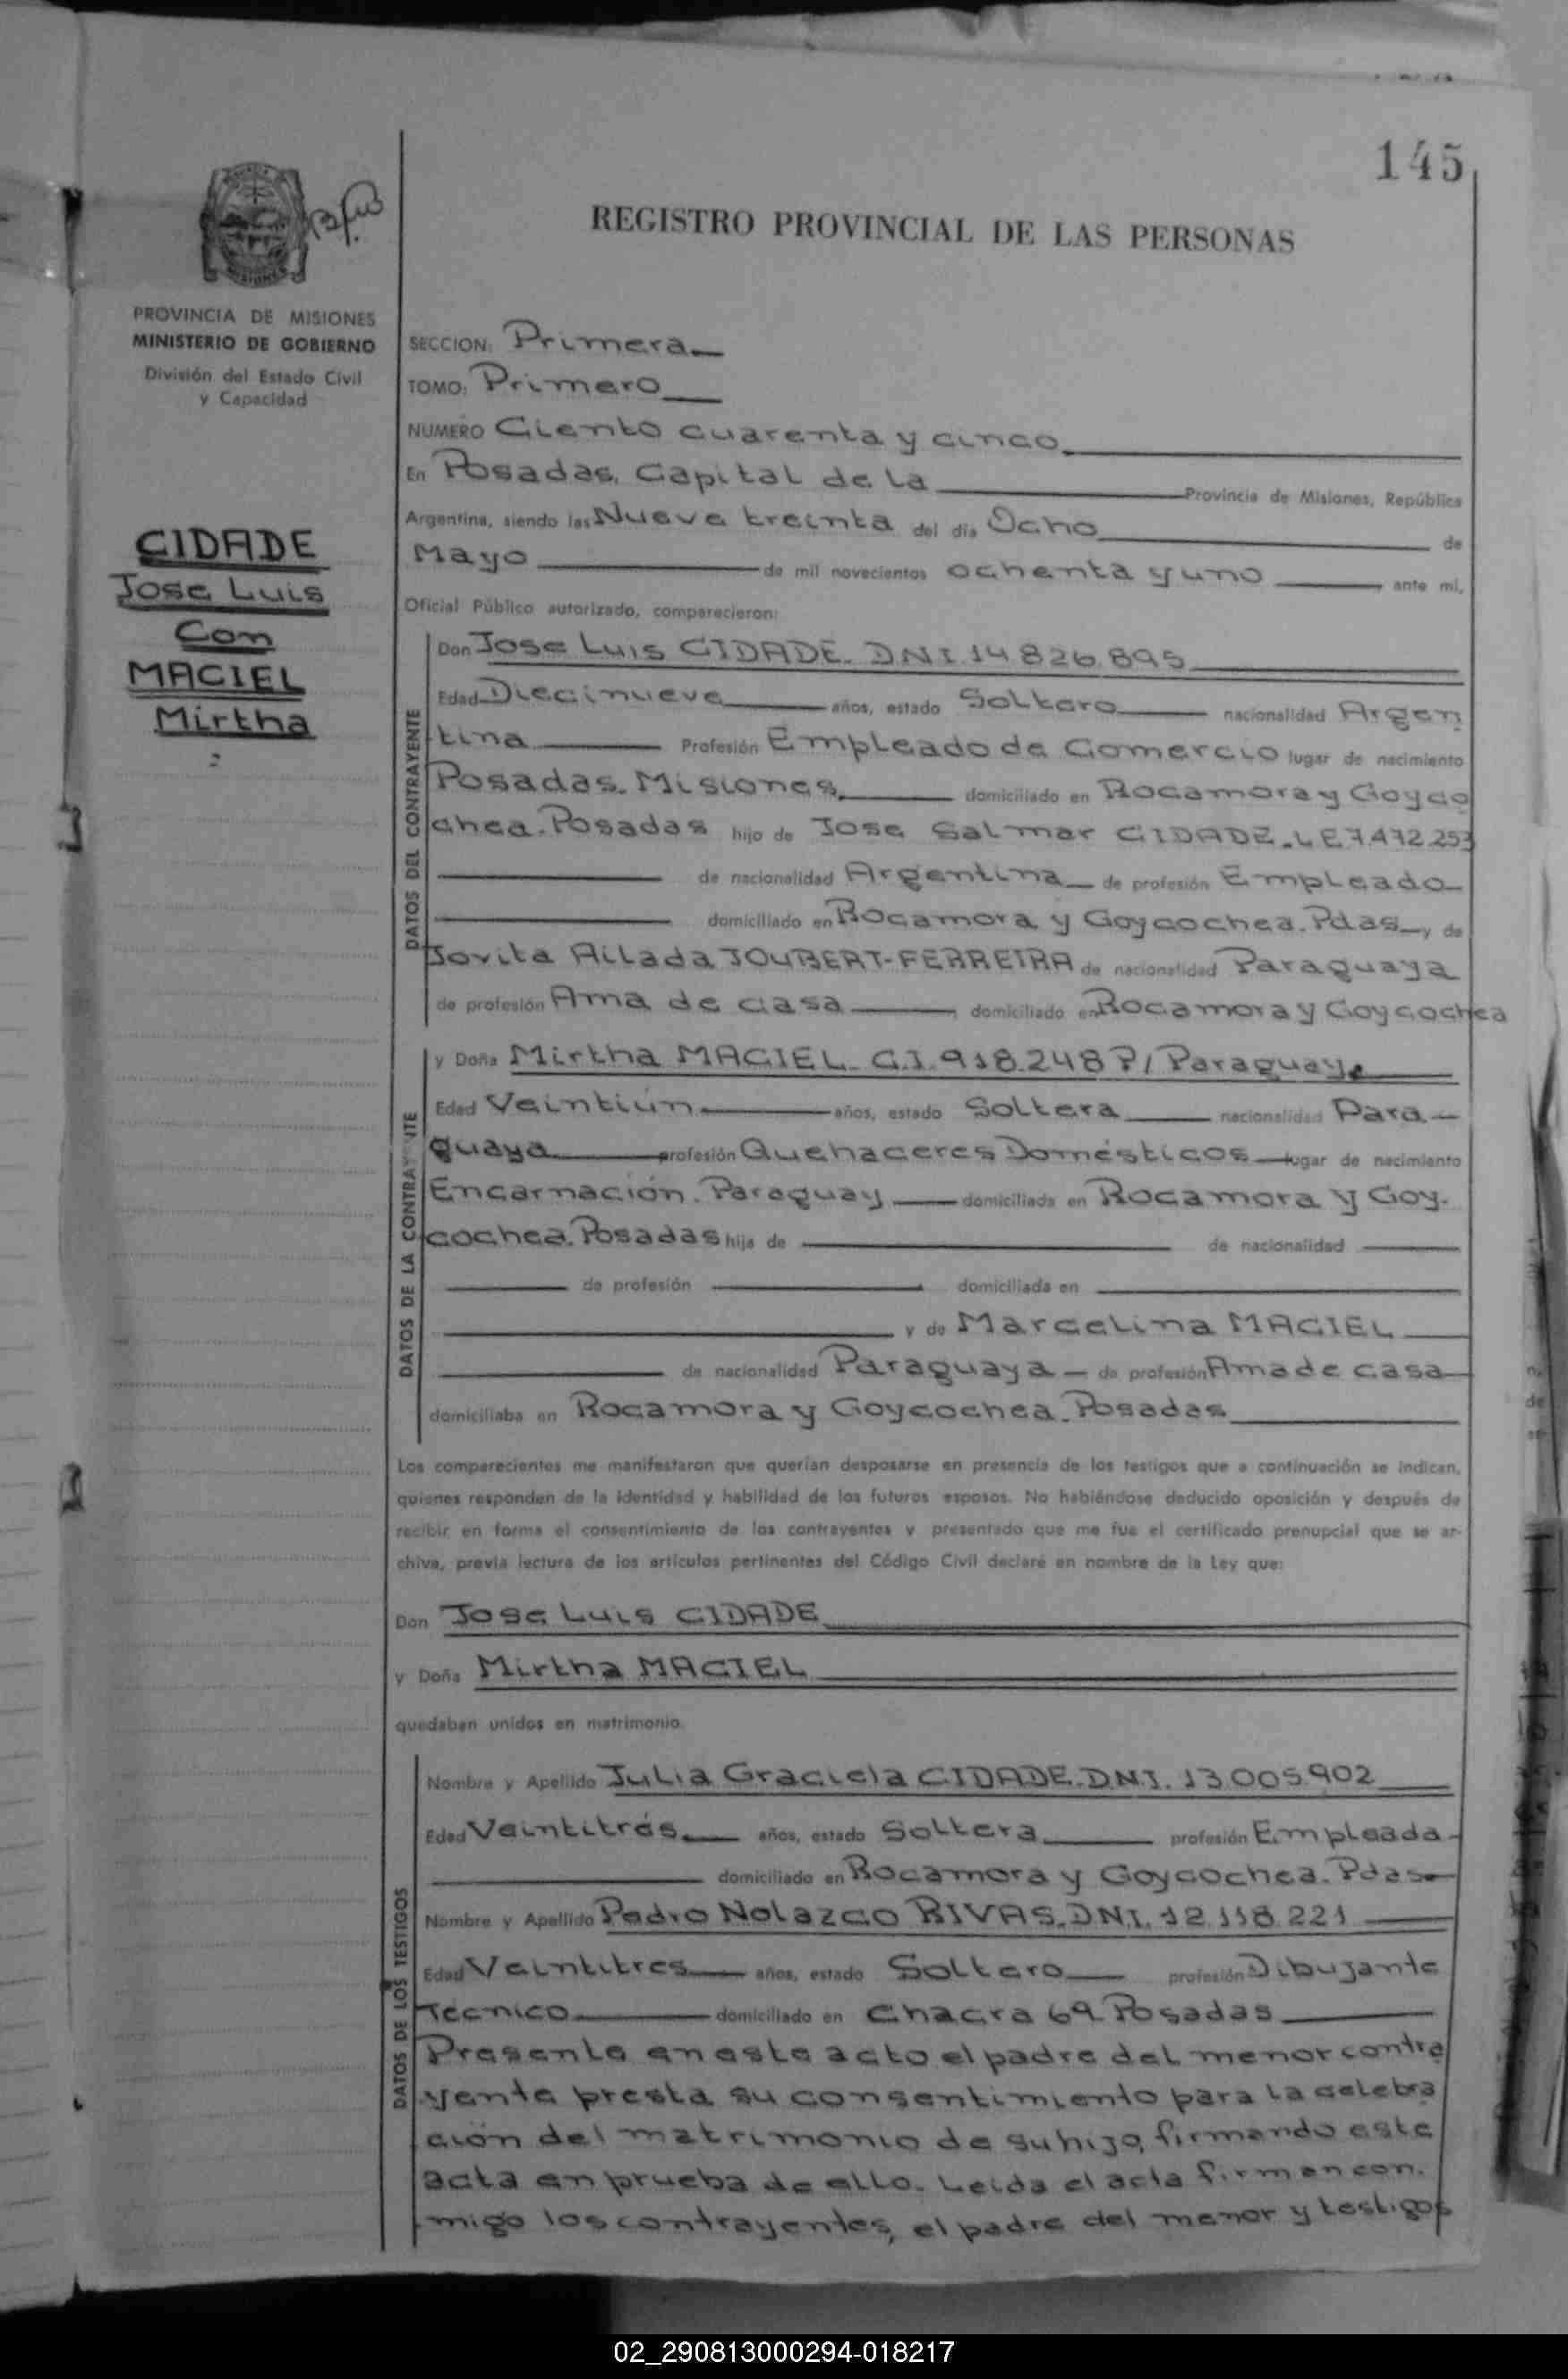 145
REGISTRO PROVINCIAL DE LAS PERSONAS
PROVINCIA DE MISIONES
MINISTERIO DE GOBIERNO
División del Estado Civil
y Capacidad
CIDADE
Jose Luis
Con
MACIEL
Mirtha
SECCION: Primera
TOMO: Primero
NUMERO Ciento cuarenta y cinco
En Posadas, Capital de la Provincia de Misiones, República
Argentina, siendo las Nueve treinta del día Ocho de
Mayo de mil novecientos ochenta y uno ante mí,
Oficial Público autorizado, comparecieron:
DATOS DEL CONTRAYENTE
Don Jose Luis CIDADE. DNI.14.826.895
Edad Diecinueve años, estado Soltero nacionalidad Argen
tina Profesión Empleado de Comercio lugar de nacimiento
Posadas. Misiones domiciliado en Rocamora y Goyco
chea. Posadas hijo de Jose Salmar CIDADE. LE 7.472.253
de nacionalidad Argentina de profesión Empleado
domiciliado en Rocamora y Goycochea. Pdas y de
Jovita Ailada JOUBERT-FERREIRA de nacionalidad Paraguaya
de profesión Ama de casa domiciliado en Rocamora y Goycochea
DATOS DE LA CONTRAY NTE
y Doña Mirtha MACIEL. C.I. 918.248 P/ Paraguay
Edad Veintiún años, estado Soltera nacionalidad Para-
guaya profesión Quehaceres Domésticos lugar de nacimiento
Encarnación. Paraguay domiciliada en Rocamora y Goy-
cochea. Posadas hija de de nacionalidad
de profesión domiciliada en
y de Marcelina MACIEL
de nacionalidad Paraguaya de profesión Ama de casa
domiciliaba en Rocamora y Goycochea. Posadas
Los comparecientes me manifestaron que querían desposarse en presencia de los testigos que a continuación se indican,
quienes responden de la identidad y habilidad de los futuros esposos. No habiéndose deducido oposición y después de
recibir en forma el consentimiento de los contrayentes y presentado que me fue el certificado prenupcial que se ar-
chiva, previa lectura de los artículos pertinentes del Código Civil declaré en nombre de la Ley que:
Don Jose Luis CIDADE
y Doña Mirtha MACIEL
quedaban unidos en matrimonio.
DATOS DE LOS TESTIGOS
Nombre y Apellido Julia Graciela CIDADE. D.N.I. 13.005.902
Edad Veintitrés años, estado Soltera profesión Empleada
domiciliado en Rocamora y Goycochea. Pdas
Nombre y Apellido Pedro Nolazco RIVAS. DNI. 12.118.221
Edad Veintitres años, estado Soltero profesión Dibujante
Tecnico domiciliado en Chacra 69 Posadas
Presente en este acto el padre del menor contra
yente presta su consentimiento para la celebra
ción del matrimonio de su hijo, firmando este
acta en prueba de ello. Leida el acta firman con-
migo los contrayentes, el padre del menor y testigos
02_290813000294-018217